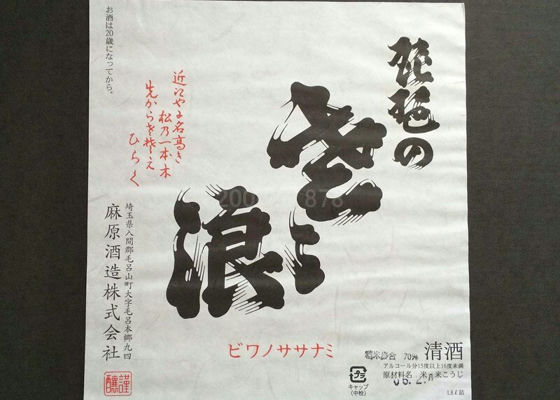 お酒は20歳になってから。
琵琶の
さゝ
浪
近江やま名高き
松乃一本木
ひらく
ビワノササナミ
埼玉県入間郡毛呂山町大字毛呂本郷九四
麻原酒造株式会社
謹醸
精米歩合 70%
清酒
アルコール分15度以上16度未満
原材料名 米・米こうじ
プラ
キャップ
(中栓)
1.8ℓ詰